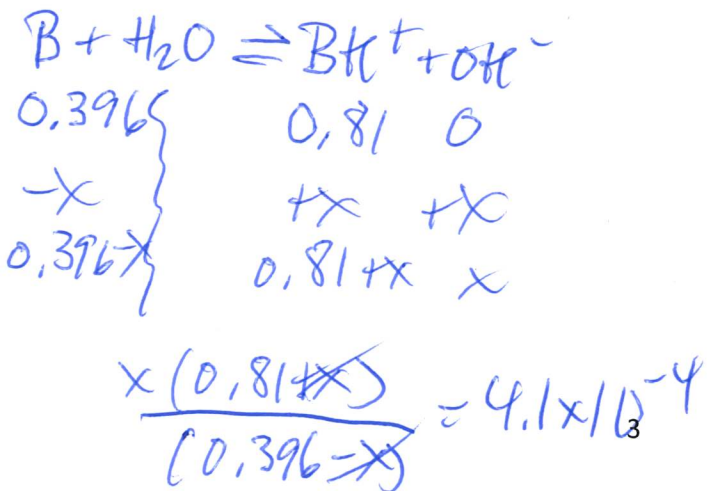 B + H₂O ⇌ BH⁺ + OH⁻
0.396 0.81 0
-x +x +x
0.396-x 0.81+x x
x(0.81+x)
(0.396-x)
= 4.1x10⁻⁴
3